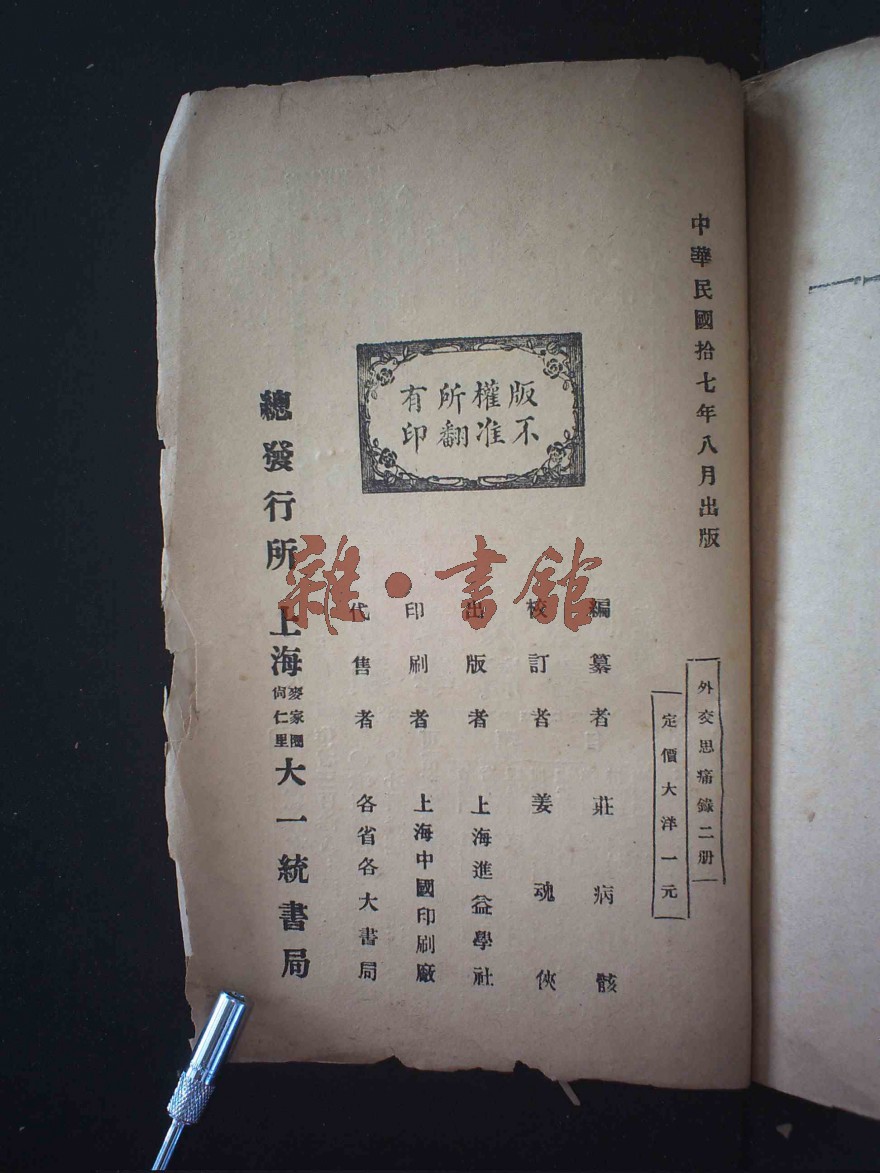 中華民國拾七年八月出版
外交思痛錄二册
定價大洋一元
版權所有
不准翻印
編纂者 莊病骸
校訂者 姜魂俠
出版者 上海進益學社
印刷者 上海中國印刷廠
代售者 各省各大書局
總發行所 上海麥家圈尙仁里大一統書局
雜·書館